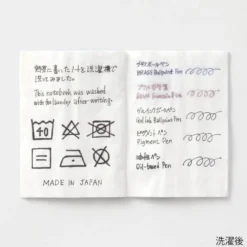 勢いよく書いたノートを洗濯機で
洗ってみました。
This notebook was washed
with the laundry after writing.
40
MADE IN JAPAN
BRASS Ballpoint Pen
ゲルインクボールペン
Gel Ink Ballpoint Pen
ピグメントペン
Pigment Pen
油性ペン
Oil-based Pen
洗濯後